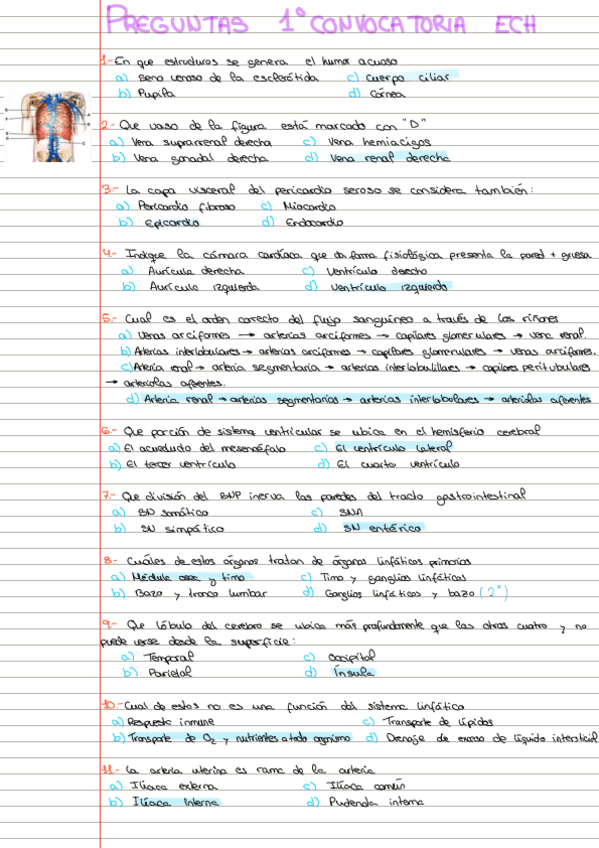 PREGUNTAS 1º CONVOCATORIA ECH
1.- En que estructuras se genera el humor acuoso
a) Seno venoso de la esclerótida c) Cuerpo ciliar
b) Pupila d) Córnea
2.- Que vaso de la figura está marcado con "D"
a) Vena suprarrenal derecha c) Vena hemiacigos
b) Vena gonadal derecha d) Vena renal derecha
3.- La capa visceral del pericardio seroso se considera también:
a) Pericardio fibroso c) Miocardio
b) Epicardio d) Endocardio
4.- Indique la cámara cardíaca que da forma fisiológica presenta la pared + gruesa
a) Aurícula derecha c) Ventrículo derecho
b) Aurícula izquierda d) Ventrículo izquierdo
5.- Cual es el orden correcto del flujo sanguíneo a través de los riñones
a) Venas arciformes → arterias arciformes → capilares glomerulares → vena renal.
b) Arterias interlobulares → arterias arciformes → capilares glomerulares → venas arciformes.
c) Arteria renal → arteria segmentaria → arterias interlobulillares → capilares peritubulares
→ arteriolas aferentes.
d) Arteria renal → arterias segmentarias → arterias interlobulares → arteriolas aferentes
6.- Que porción de sistema ventricular se ubica en el hemisferio cerebral
a) El acueducto del mesencéfalo c) El ventrículo lateral
b) El tercer ventrículo d) El cuarto ventrículo
7.- Que división del SNP inerva las paredes del tracto gastrointestinal
a) SN somático c) SNA
b) SN simpático d) SN entérico
8.- Cuáles de estos órganos tratan de órganos linfáticos primarios
a) Médula osea y timo c) Timo y ganglios linfáticos
b) Bazo y tronco lumbar d) Ganglios linfáticos y bazo (2º)
9.- Que lóbulo del cerebro se ubica más profundamente que las otras cuatro y no
puede verse desde la superficie:
a) Temporal c) Occipital
b) Parietal d) Ínsula
10.- Cual de estos no es una función del sistema linfático
a) Respuesta inmune c) Transporte de lípidos
b) Transporte de O2 y nutrientes a todo organismo d) Drenaje de exceso de líquido intersticial
11.- La arteria uterina es rama de la arteria
a) Ilíaca externa c) Ilíaca común
b) Ilíaca Interna d) Pudenda interna